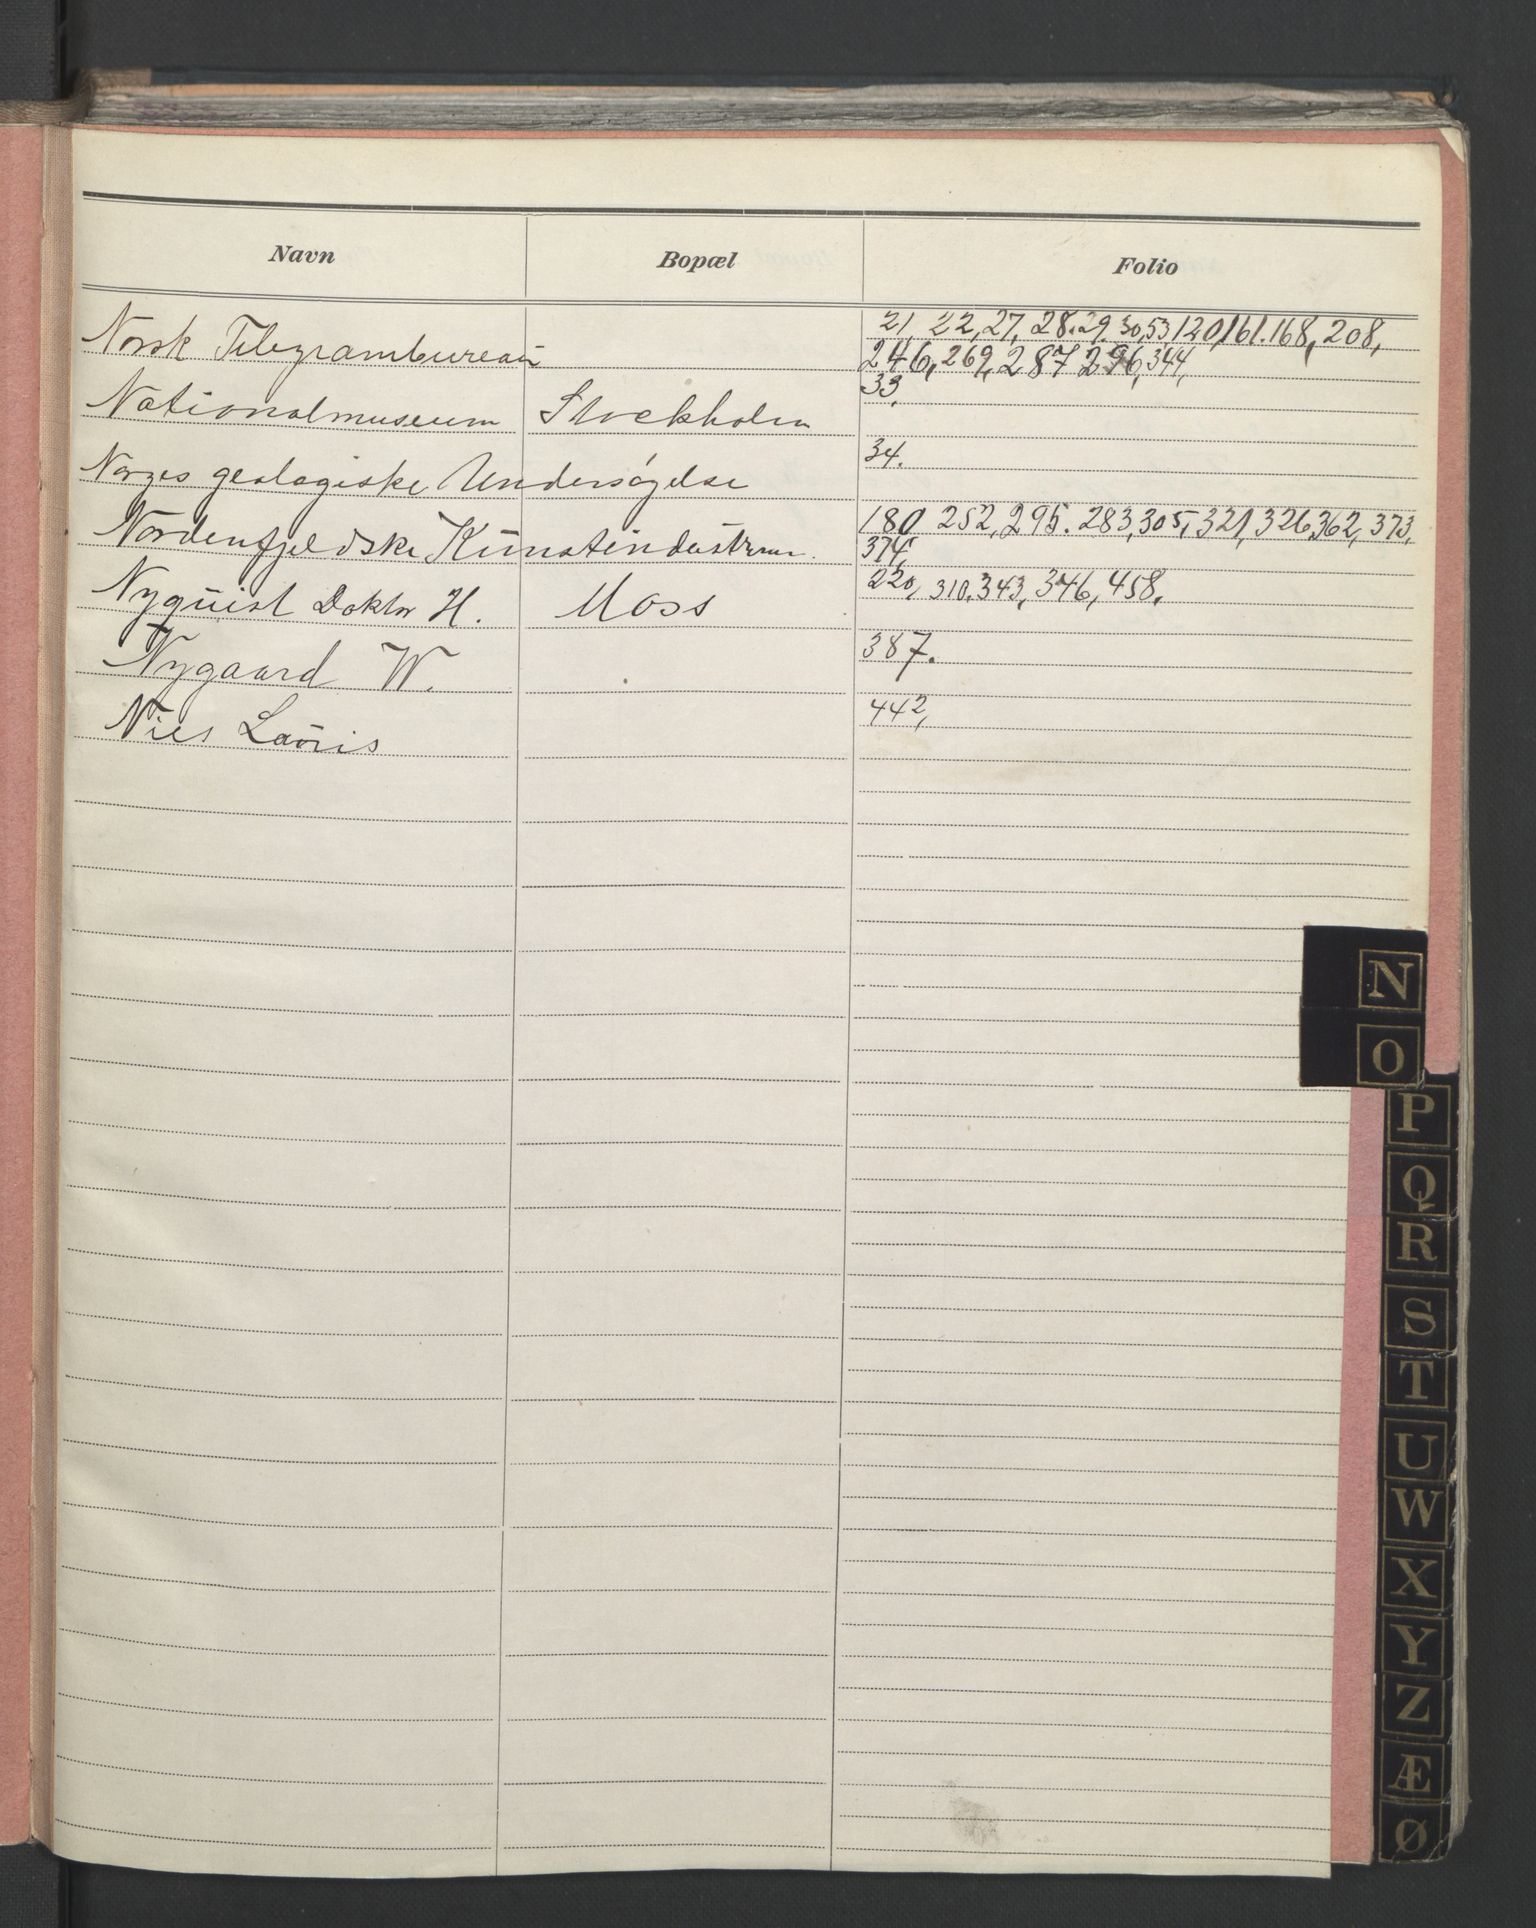 Navn Bopæl Folio
Norsk Telegrambureaŭ 21, 22, 27, 28. 29. 30, 53, 120, 161. 168, 208,
246, 269, 287 296, 344,
Nationalmuseum Stockholm 33,
Norges geologiske Undersögelse 34.
Nordenfjeldske Kŭnstindŭstrimu. 180, 252, 295. 283, 305, 321, 326, 362, 373,
374,
Nyqŭist Doktor H. Moss 220, 310. 343, 346, 458,
Nygaard W. 387.
Niels Laŭris 442,
N
O
P
Q
R
S
T
U
W
X
Y
Z
Æ
Ø